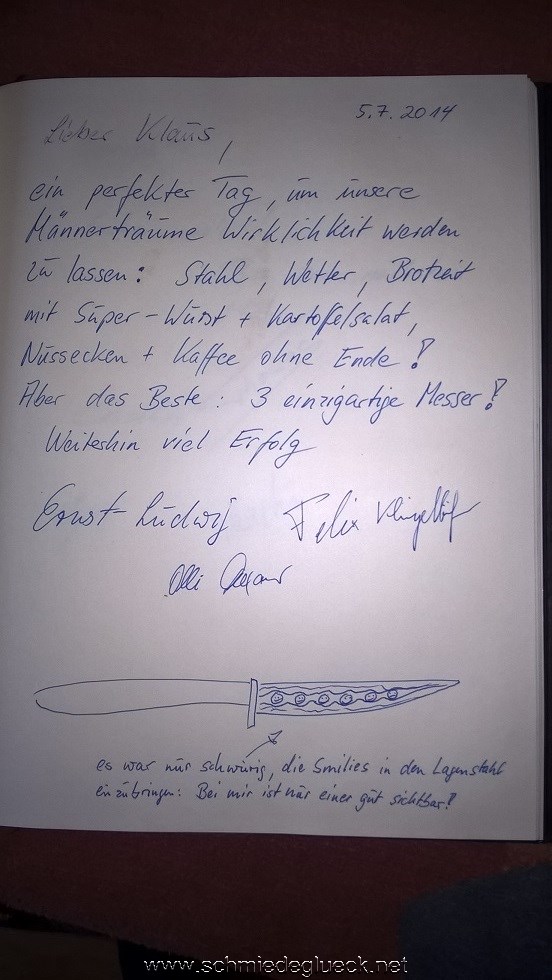 5.7.2014
Lieber Klaus,
ein perfekter Tag, um unsere
Männerträume Wirklichkeit werden
zu lassen: Stahl, Wetter, Brotzeit
mit Super-Wurst + Kartoffelsalat,
Nussecken + Kaffee ohne Ende!
Aber das Beste: 3 einzigartige Messer!
Weiterhin viel Erfolg
Ernst-Ludwig Felix
Olli
es war nur schwierig, die Smilies in den Lagenstahl
einzubringen: Bei mir ist nur einer gut sichtbar!
www.schmiedeglueck.net